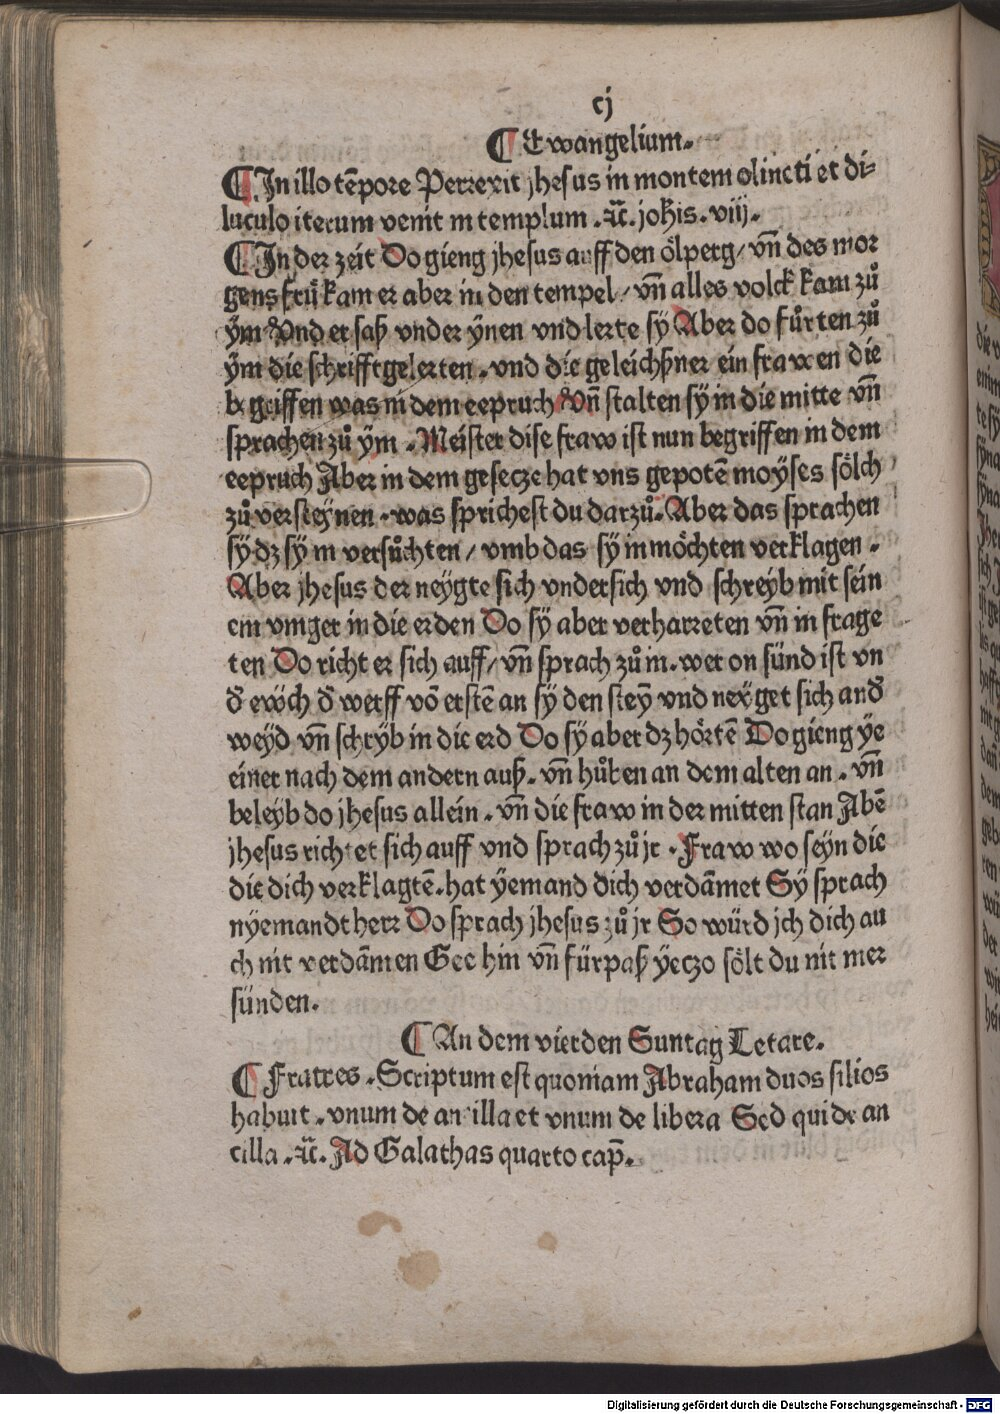 cj
¶ Ewangelium.
¶ In illo tēpore Perrexit jhesus in montem oliueti et di-
luculo iterum venit in templum. ꝛc̄. joħis. viij.
¶ In der zeit Do gieng jhesus auff den ölperg/ vn̄ des mor
gens frů kam er aber in den tempel/ vn̄ alles volck kam zů
ym Vnd er saß vnder ÿnen vnd lerte sÿ Aber do fůrten zů
ÿm die schrifftgelerten. vnd die geleichßner ein frawen die
begriffen was in dem eepruch Vn̄ stalten sÿ in die mitte vn̄
sprachen zů ÿm. Meister dise fraw ist nun begriffen in dem
eepruch Aber in dem gesecze hat vns gepotē moÿses sölch
zů versteÿnen. was sprichest du darzů. Aber das sprachen
sÿ dz sÿ in versůchten/ vmb das sÿ in möchten verklagen.
Aber jhesus der neÿgte sich vndersich vnd schreÿb mit sein
em vinger in die erden Do sÿ aber verharreten vn̄ in frage
ten Do richt er sich auff/ vn̄ sprach zů in. wer on sünd ist vn
đ ewch đ werff vō erstē an sÿ den steÿ vnd neÿget sich anđ
weÿd vn̄ schrÿb in die erd Do sÿ aber dz hörtē Do gieng ÿe
einer nach dem andern auß. vn̄ hůben an dem alten an. vn̄
beleÿb do jhesus allein. vn̄ die fraw in der mitten stan Abē
jhesus richtet sich auff vnd sprach zů jr. Fraw wo seÿn die
die dich verklagtē. hat ÿemand dich verdāmet Sÿ sprach
nÿemandt herr Do sprach jhesus zů jr So würd jch dich au
ch nit verdāmen Gee hin vn̄ fürpaß ÿeczo sölt du nit mer
sünden.
¶ An dem vierden Suntag Letare.
¶ Fratres. Scriptum est quoniam Abraham duos filios
habuit. vnum de ancilla et vnum de libera Sed qui de an
cilla. ꝛc̄. Ad Galathas quarto cap̄.
Digitalisierung gefördert durch die Deutsche Forschungsgemeinschaft - DFG